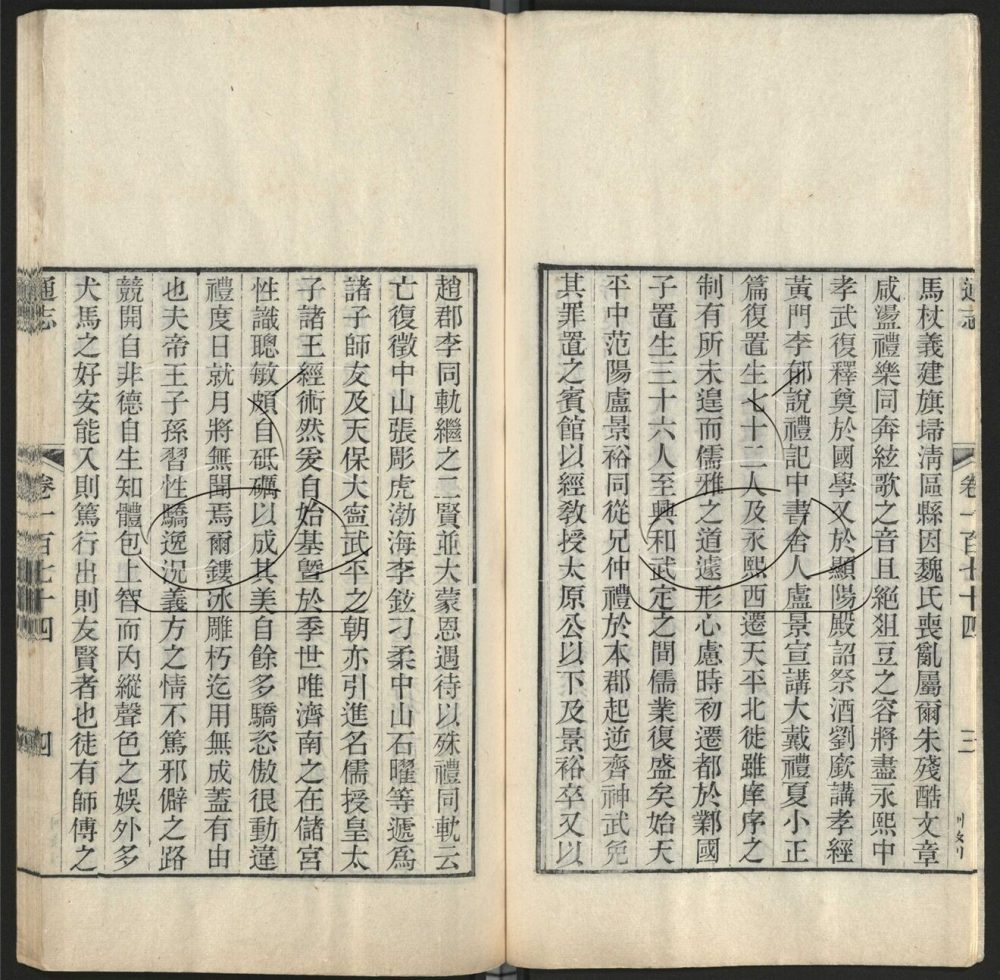 通志
卷一百七十四
三
馬杖義建旗埽淸區縣因魏氏喪亂屬爾朱殘酷文章
咸盪禮樂同奔絃歌之音且絕俎豆之容將盡永熙中
孝武復釋奠於國學又於顯陽殿詔祭酒劉廞講孝經
黃門李郁說禮記中書舍人盧景宣講大戴禮夏小正
篇復置生七十二人及永熙西遷天平北徙雖庠序之
制有所未遑而儒雅之道遽形心慮時初遷都於鄴國
子置生三十六人至興和武定之間儒業復盛矣始天
平中范陽盧景裕同從兄仲禮於本郡起逆齊神武免
其罪置之賓館以經敎授太原公以下及景裕卒又以
趙郡李同軌繼之二賢並大蒙恩遇待以殊禮同軌云
亡復徵中山張彫虎渤海李鉉刁柔中山石曜等遞爲
諸子師友及天保大寍武平之朝亦引進名儒授皇太
子諸王經術然爰自始基曁於季世唯濟南之在儲宮
性識聰敏頗自砥礪以成其美自餘多驕恣傲很動違
禮度日就月將無聞焉爾鏤冰雕朽迄用無成蓋有由
也夫帝王子孫習性驕逸況義方之情不篤邪僻之路
競開自非德自生知體包上智而內縱聲色之娛外多
犬馬之好安能入則篤行出則友賢者也徒有師傅之
通志
卷一百七十四
四